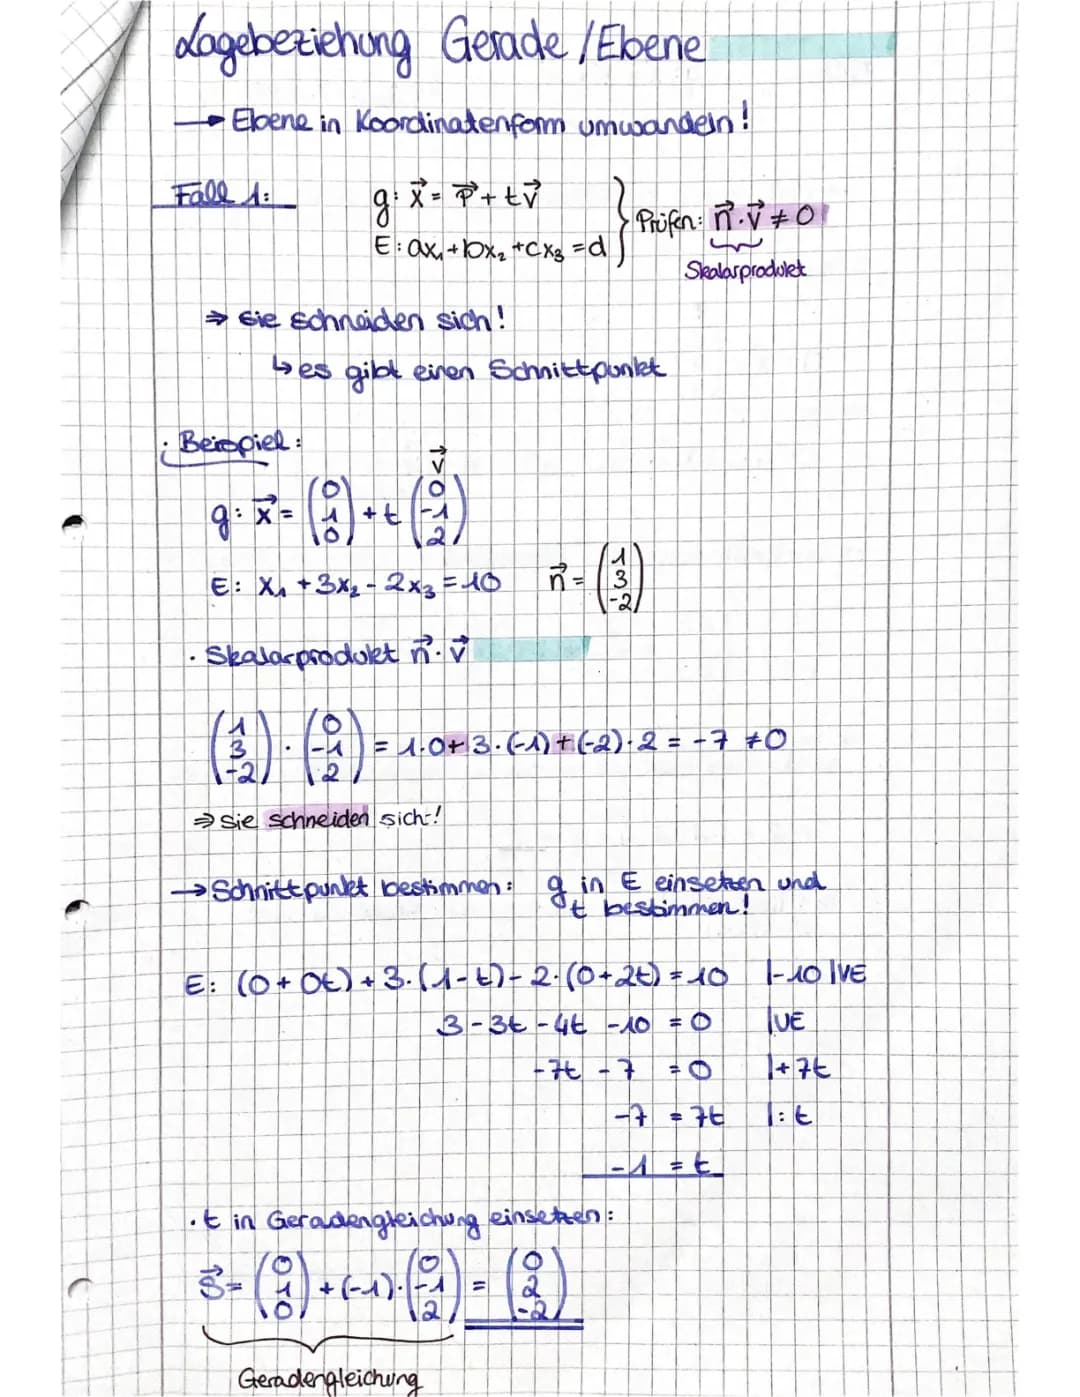 Lagebeziehung Gerade/Ebene
→ Ebene in Koordinatenform umwandeln!
Fall 1:
g: x⃗ = p⃗ + tv⃗
E: ax₁+bx₂+cx₃ = d } Prüfen: n⃗·v⃗ ≠ 0
Skalarprodukt
⇒ sie schneiden sich!
↳ es gibt einen Schnittpunkt
· Beispiel:
v⃗
g: x⃗ = (0 1 0) + t (0 -1 2)
E: x₁ + 3x₂ - 2x₃ = 10 n⃗ = (1 3 -2)
· Skalarprodukt n⃗·v⃗
(1 3 -2) · (0 -1 2) = 1·0+3·(-1)+(-2)·2 = -7 ≠0
⇒ sie schneiden sich!
→ Schnittpunkt bestimmen: g in E einsetzen und
t bestimmen!
E: (0+0t)+3·(1-t)-2·(0+2t) = 10 |-10 |VE
3-3t-4t -10 = 0 |VE
-7t - 7 = 0 |+7t
-7 = 7t |:t
-1 = t
· t in Geradengleichung einsetzen:
S⃗ = (0 1 0) + (-1)·(0 -1 2) = (0 2 -2)
Geradengleichung